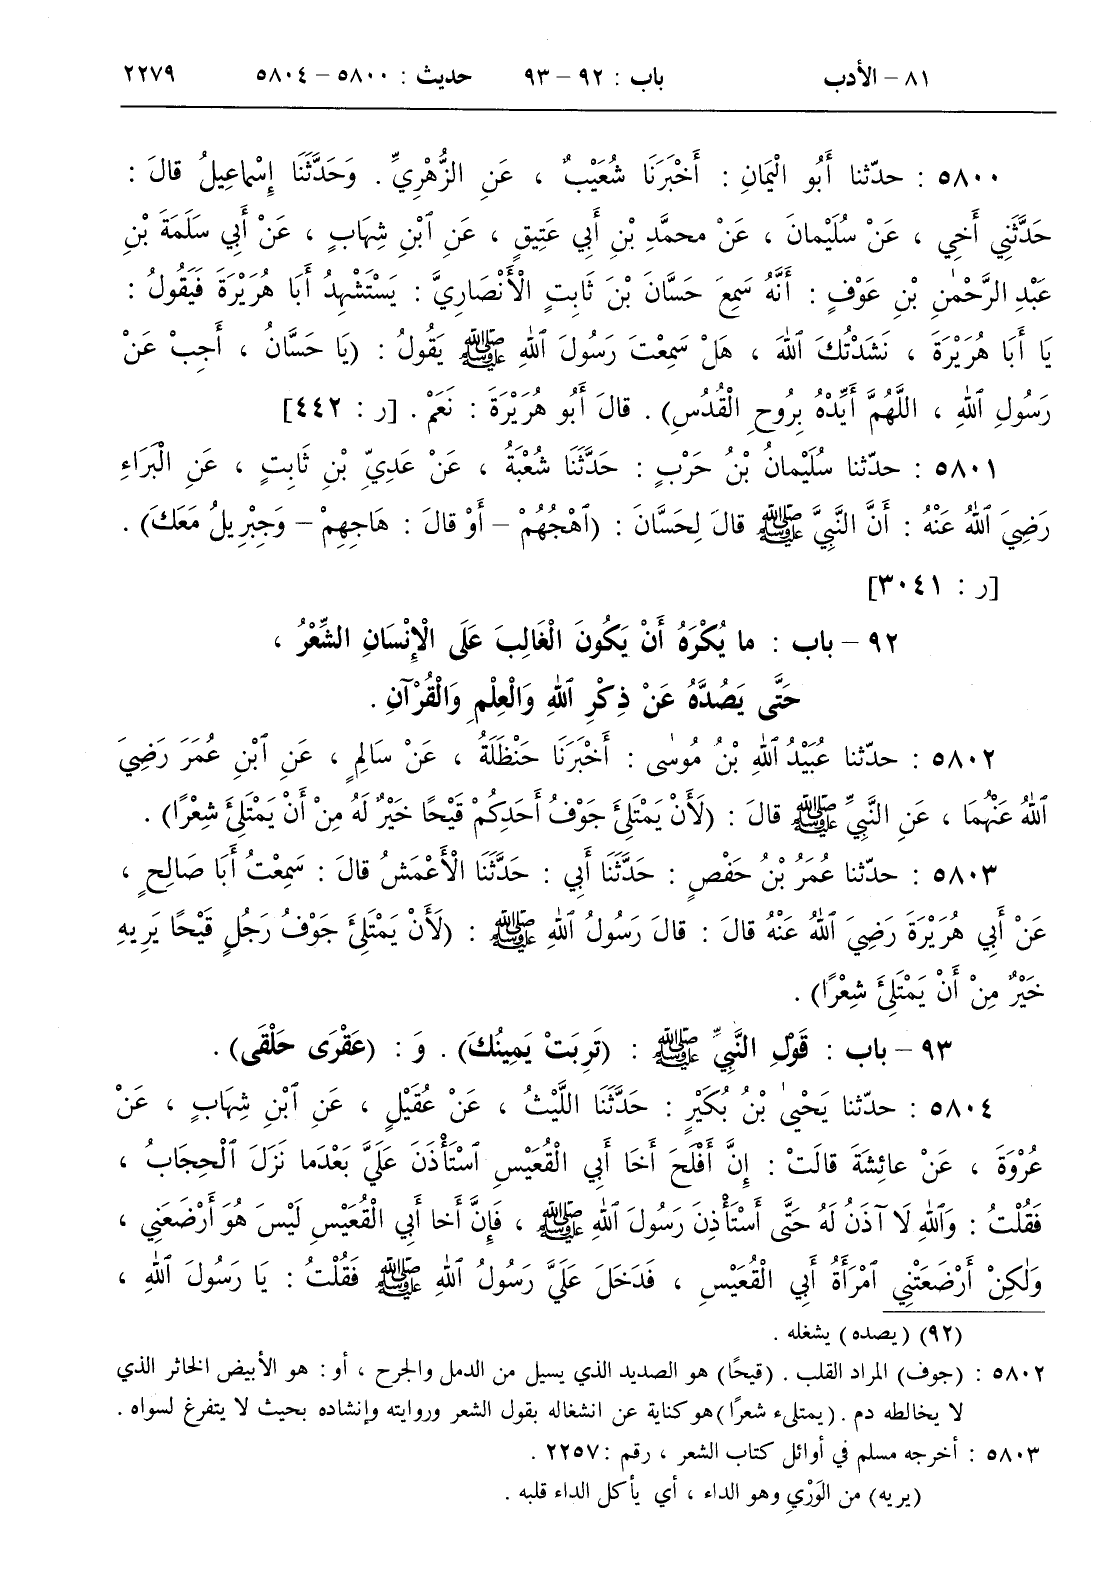 ٨١ – الأدب باب : ٩٢ – ٩٣ حديث : ٥٨٠٠ – ٥٨٠٤ ٢٢٧٩
٥٨٠٠ : حدّثنا أَبُو الْيَمَانِ : أَخْبَرَنَا شُعَيْبٌ ، عَنِ الزُّهْرِيِّ . وَحَدَّثَنَا إِسْمَاعِيلُ قالَ :
حَدَّثَنِي أَخِي ، عَنْ سُلَيْمانَ ، عَنْ محمَّدِ بْنِ أَبِي عَتِيقٍ ، عَنِ ٱبْنِ شِهَابٍ ، عَنْ أَبِي سَلَمَةَ بْنِ
عَبْدِ الرَّحْمٰنِ بْنِ عَوْفٍ : أَنَّهُ سَمِعَ حَسَّانَ بْنَ ثَابِتٍ الْأَنْصَارِيَّ : يَسْتَشْهِدُ أَبَا هُرَيْرَةَ فَيَقُولُ :
يَا أَبَا هُرَيْرَةَ ، نَشَدْتُكَ ٱللهَ ، هَلْ سَمِعْتَ رَسُولَ ٱللهِ ﷺ يَقُولُ : (يَا حَسَّانُ ، أَجِبْ عَنْ
رَسُولِ ٱللهِ ، اللَّهُمَّ أَيِّدْهُ بِرُوحِ الْقُدُسِ) . قالَ أَبُو هُرَيْرَةَ : نَعَمْ . [ر : ٤٤٢]
٥٨٠١ : حدّثنا سُلَيْمانُ بْنُ حَرْبٍ : حَدَّثَنَا شُعْبَةُ ، عَنْ عَدِيِّ بْنِ ثَابِتٍ ، عَنِ الْبَرَاءِ
رَضِيَ ٱللهُ عَنْهُ : أَنَّ النَّبِيَّ ﷺ قالَ لِحَسَّانَ : (ٱهْجُهُمْ – أَوْ قالَ : هَاجِهِمْ – وَجِبْرِيلُ مَعَكَ) .
[ر : ٣٠٤١]
٩٢ – باب : ما يُكْرَهُ أَنْ يَكُونَ الْغَالِبَ عَلَى الْإِنْسَانِ الشِّعْرُ ،
حَتَّى يَصُدَّهُ عَنْ ذِكْرِ ٱللهِ وَالْعِلْمِ وَالْقُرْآنِ .
٥٨٠٢ : حدّثنا عُبَيْدُ ٱللهِ بْنُ مُوسٰى : أَخْبَرَنَا حَنْظَلَةُ ، عَنْ سَالِمٍ ، عَنِ ٱبْنِ عُمَرَ رَضِيَ
ٱللهُ عَنْهُمَا ، عَنِ النَّبِيِّ ﷺ قالَ : (لَأَنْ يَمْتَلِئَ جَوْفُ أَحَدِكُمْ قَيْحًا خَيْرٌ لَهُ مِنْ أَنْ يَمْتَلِئَ شِعْرًا) .
٥٨٠٣ : حدّثنا عُمَرُ بْنُ حَفْصٍ : حَدَّثَنَا أَبِي : حَدَّثَنَا الْأَعْمَشُ قالَ : سَمِعْتُ أَبَا صَالِحٍ ،
عَنْ أَبِي هُرَيْرَةَ رَضِيَ ٱللهُ عَنْهُ قالَ : قالَ رَسُولُ ٱللهِ ﷺ : (لَأَنْ يَمْتَلِئَ جَوْفُ رَجُلٍ قَيْحًا يَرِيهِ
خَيْرٌ مِنْ أَنْ يَمْتَلِئَ شِعْرًا) .
٩٣ – باب : قَوْلِ النَّبِيِّ ﷺ : (تَرِبَتْ يَمِينُكَ) . وَ : (عَقْرَى حَلْقَى) .
٥٨٠٤ : حدّثنا يَحْيىٰ بْنُ بُكَيْرٍ : حَدَّثَنَا اللَّيْثُ ، عَنْ عُقَيْلٍ ، عَنِ ٱبْنِ شِهَابٍ ، عَنْ
عُرْوَةَ ، عَنْ عائِشَةَ قالَتْ : إِنَّ أَفْلَحَ أَخَا أَبِي الْقُعَيْسِ ٱسْتَأْذَنَ عَلَيَّ بَعْدَما نَزَلَ الْحِجَابُ ،
فَقُلْتُ : وَٱللهِ لَا آذَنُ لَهُ حَتَّى أَسْتَأْذِنَ رَسُولَ ٱللهِ ﷺ ، فَإِنَّ أَخا أَبِي الْقُعَيْسِ لَيْسَ هُوَ أَرْضَعَنِي ،
وَلٰكِنْ أَرْضَعَتْنِي ٱمْرَأَةُ أَبِي الْقُعَيْسِ ، فَدَخَلَ عَلَيَّ رَسُولُ ٱللهِ ﷺ فَقُلْتُ : يَا رَسُولَ ٱللهِ ،
(٩٢) (يصده) يشغله .
٥٨٠٢ : (جوف) المراد القلب . (قيحًا) هو الصديد الذي يسيل من الدمل والجرح ، أو : هو الأبيض الخاثر الذي
لا يخالطه دم . (يمتلىء شعرًا) هو كناية عن انشغاله بقول الشعر وروايته وإنشاده بحيث لا يتفرغ لسواه .
٥٨٠٣ : أخرجه مسلم في أوائل كتاب الشعر ، رقم : ٢٢٥٧ .
(يريه) من الوَرْيِ وهو الداء ، أي يأكل الداء قلبه .